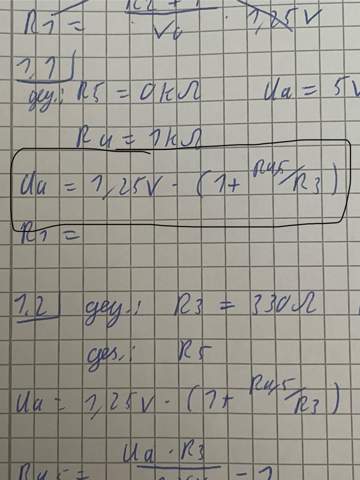 R1 = · 1,25V
1,1
geg.: R5 = 0kΩ Ua = 5V
R4 = 1kΩ
Ua = 1,25V · (1+ R4,5/R3)
R1 =
1.2 geg.: R3 = 330Ω
ges.: R5
Ua = 1,25V · (1+ R4,5/R3)
R4,5 = Ua · R3 - 1